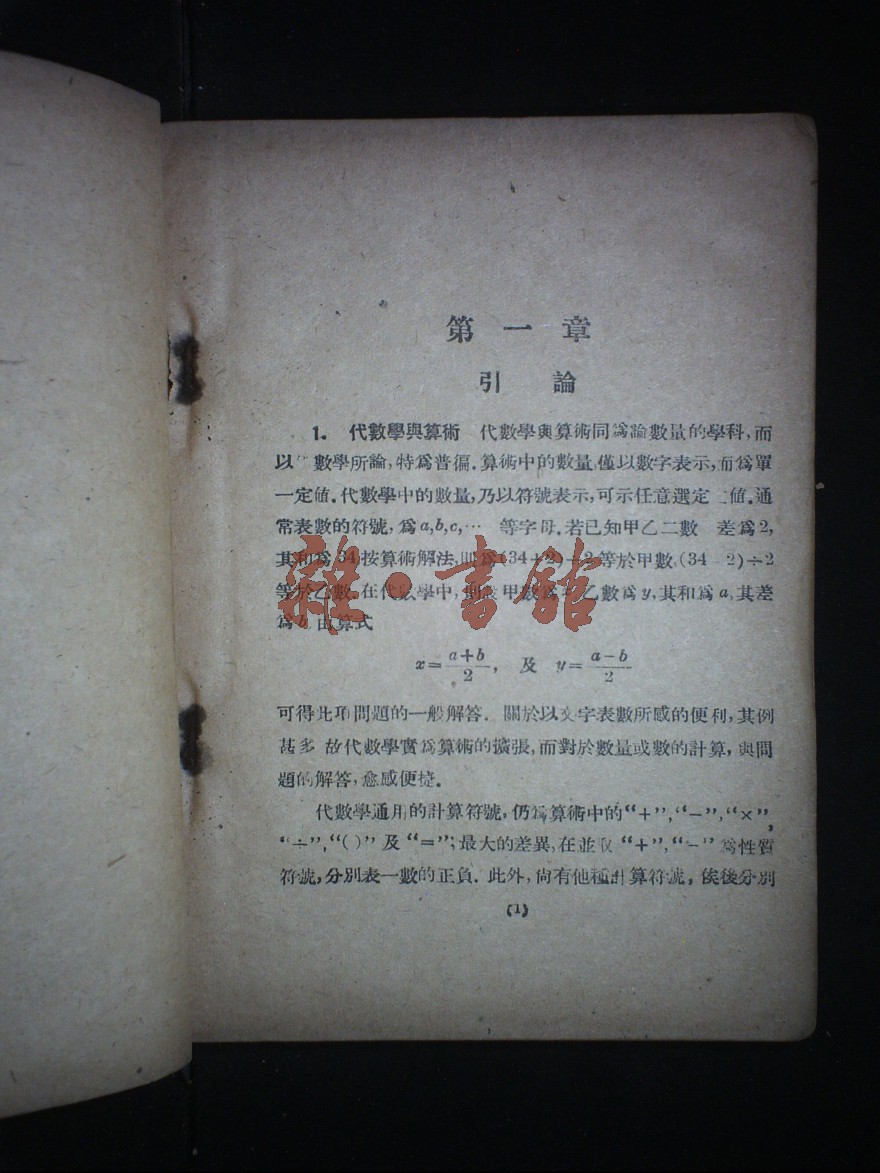 第一章
引論
1. 代數學與算術 代數學與算術同爲論數量的學科,而
以 數學所論,特爲普徧.算術中的數量,僅以數字表示,而爲單
一定値.代數學中的數量,乃以符號表示,可示任意選定 値.通
常表數的符號,爲a,b,c,… 等字母.若已知甲乙二數 差爲2,
其和爲34,按算術解法,則爲(34+2)÷2等於甲數,(34-2)÷2
等於乙數.在代數學中,則 甲數爲 乙數爲y,其和爲a,其差
爲b,由算式
x=(a+b)/2, 及 y=(a-b)/2
可得此項問題的一般解答. 關於以文字表數所感的便利,其例
甚多 故代數學實爲算術的擴張,而對於數量或數的計算,與問
題的解答,愈感便捷.
代數學通用的計算符號,仍爲算術中的“+”,“-”,“×”,
“÷”,“( )” 及 “=”;最大的差異,在並取 “+”,“-” 爲性質
符號,分別表一數的正負. 此外,尙有他種計算符號, 俟後分別
(1)
雜·書館